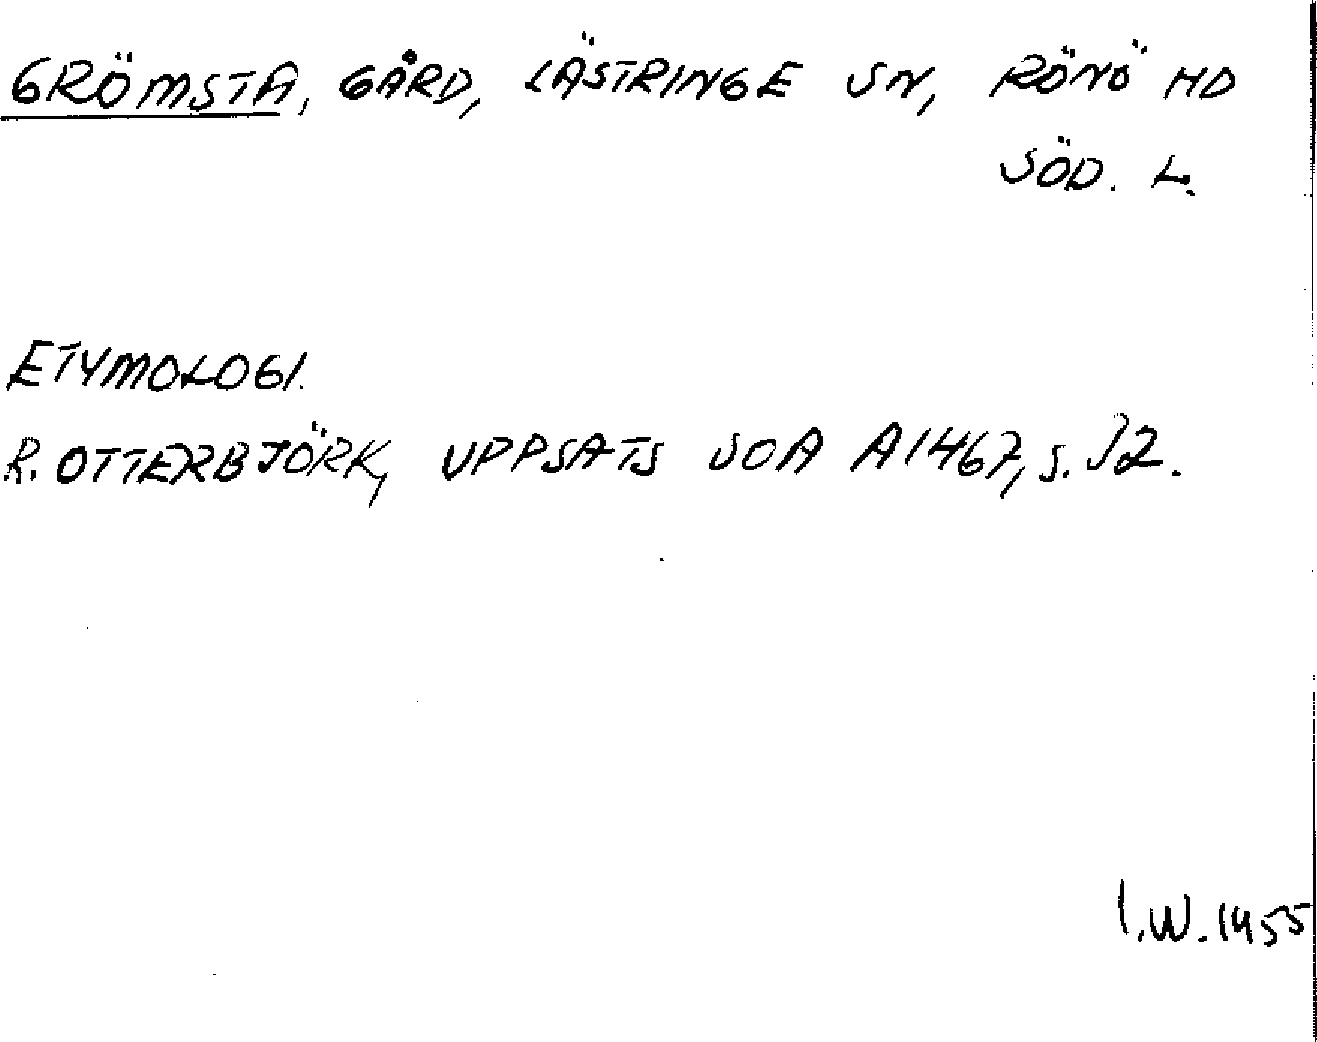 GRÖMSTA, GÅRD, LÄSTRINGE SN, RÖNÖ HD
SÖD. L.
ETYMOLOGI.
R. OTTERBJÖRK, UPPSATS SOA A1467, s. 32.
I.W. 1955